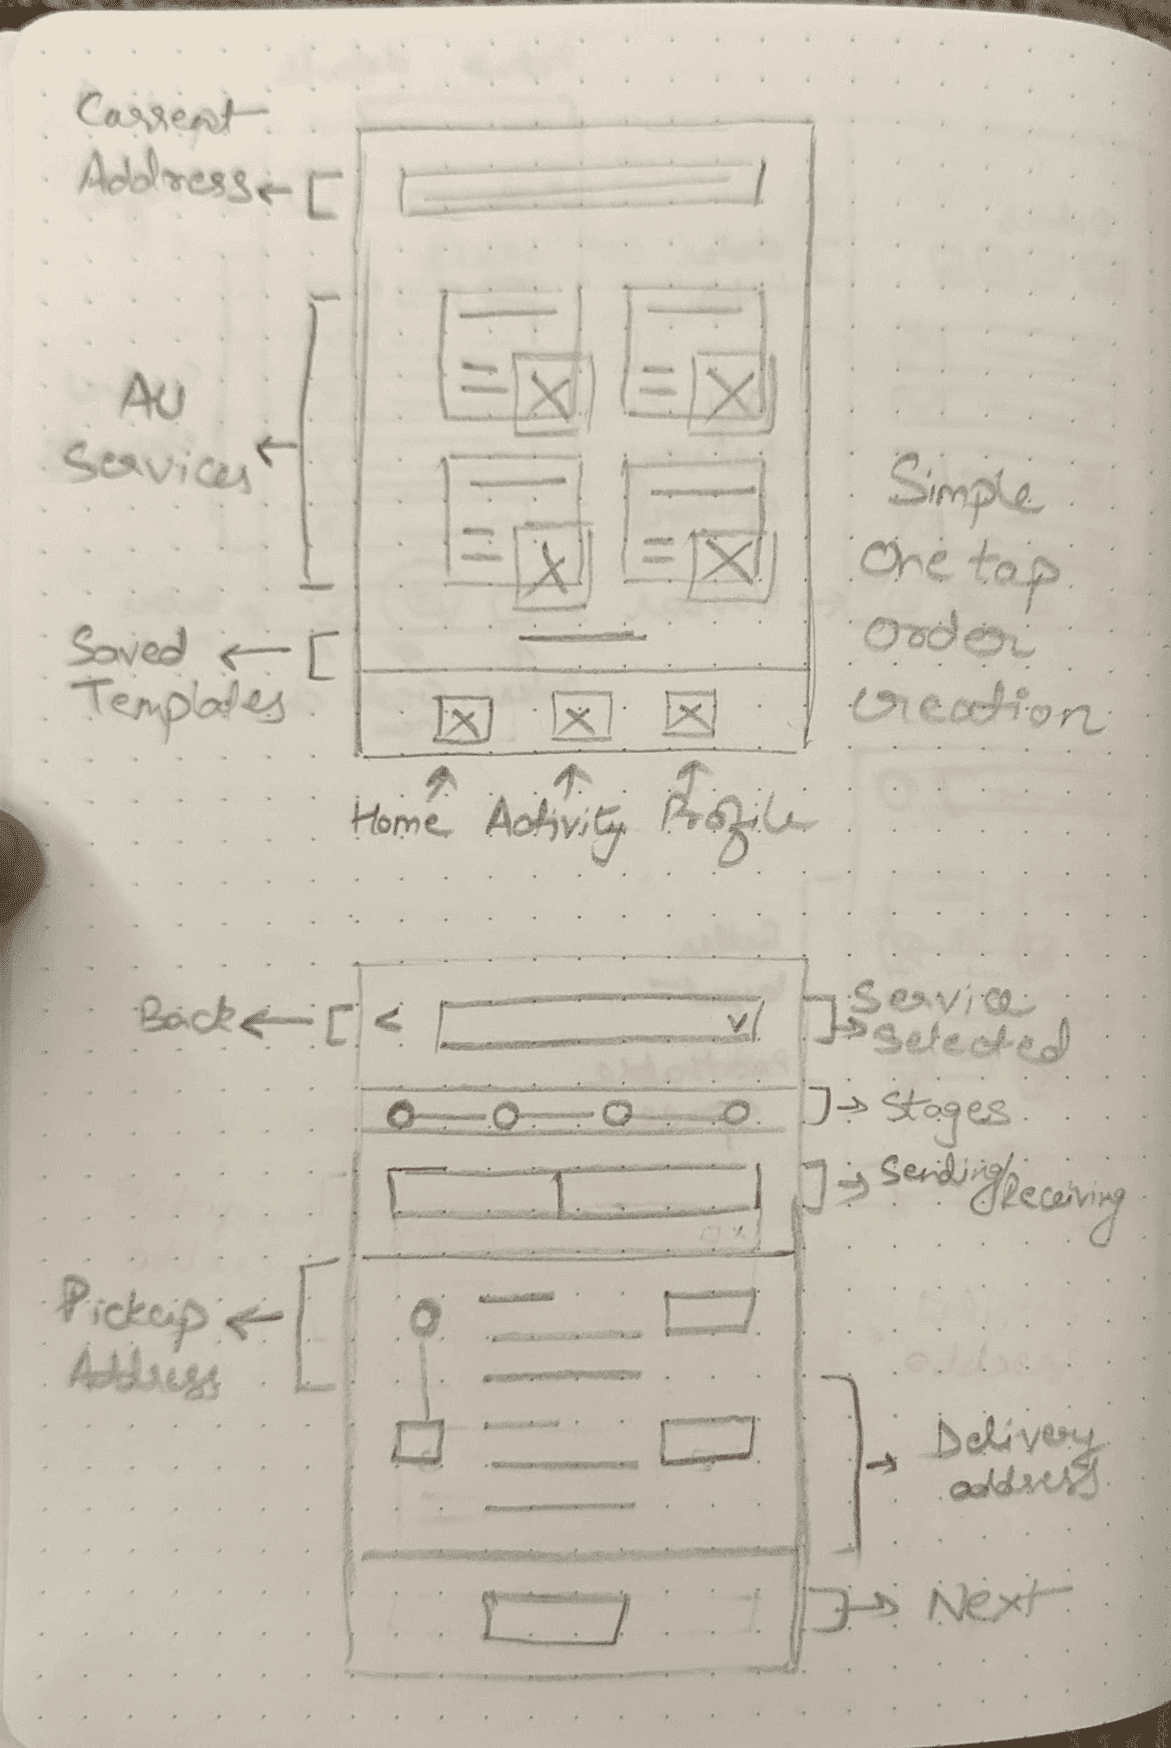 Current
Address
All
Services
Saved
Templates
Simple
One tap
order
creation
Home Activity Profile
Back
Service
Selected
Stages
Sending/Receiving
Pickup
Address
Delivery
address
Next